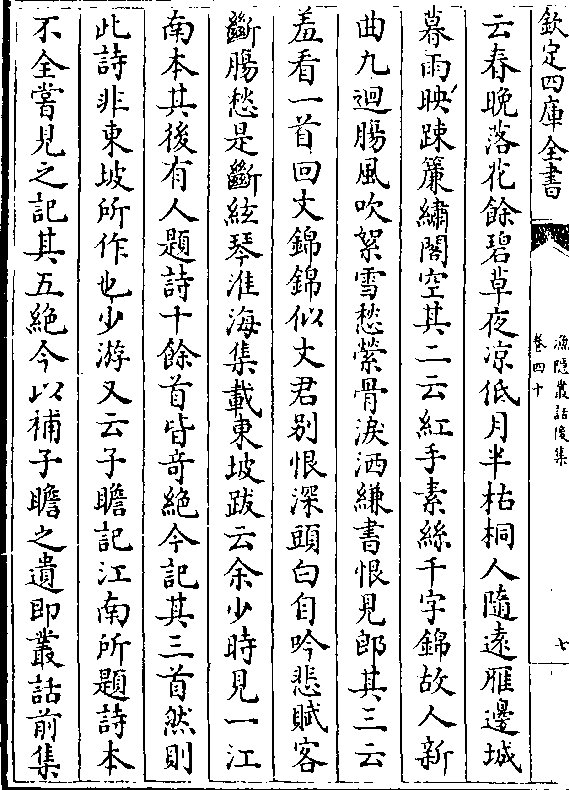 欽定四庫全書
漁隱叢話後集
卷四十
七
云春晚落花餘碧草夜凉低月半枯桐人隨遠雁邊城
暮雨映踈簾繡閣空其二云紅手素絲千字錦故人新
曲九迴腸風吹絮雪愁縈骨淚洒縑書恨見郎其三云
羞看一首回文錦錦似文君别恨深頭白自吟悲賦客
斷腸愁是斷絃琴淮海集載東坡跋云余少時見一江
南本其後有人題詩十餘首皆竒絶今記其三首然則
此詩非東坡所作也少游又云子瞻記江南所題詩本
不全嘗見之記其五絶今以補子瞻之遺即叢話前集